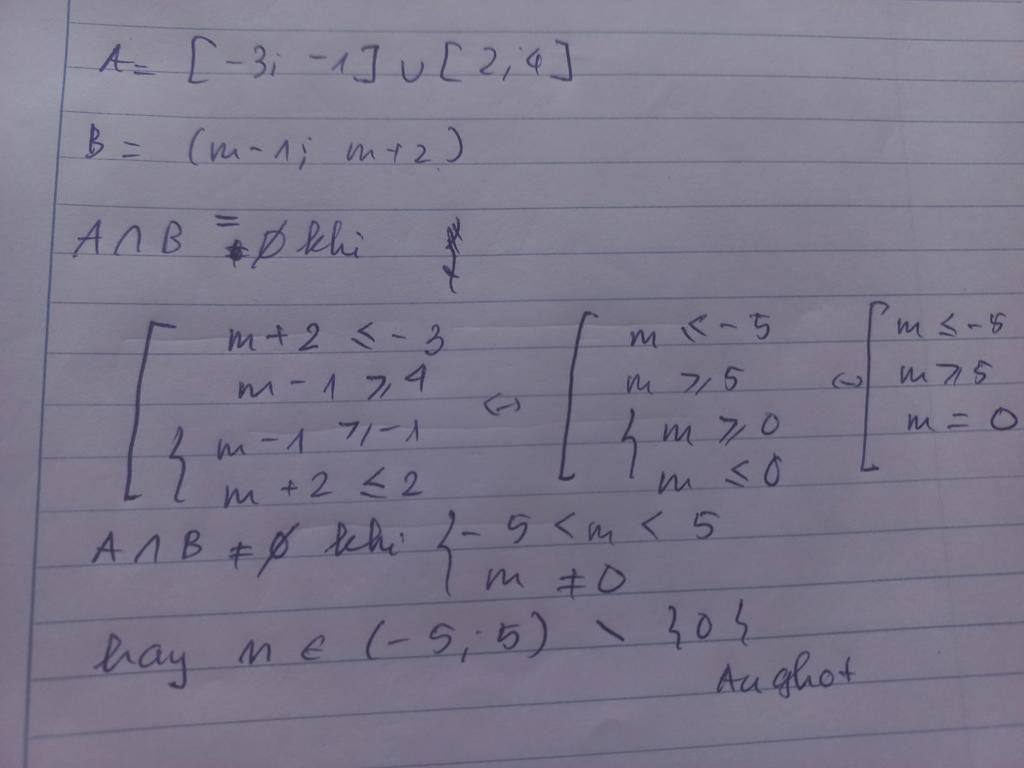 A = [-3; -1] ∪ [2; 4]
B = (m-1; m+2)
A ∩ B = ∅ khi
m+2 ≤ -3
m-1 ≥ 4
m-1 ≥ -1
m+2 ≤ 2
⇔
m ≤ -5
m ≥ 5
m ≥ 0
m ≤ 0
⇔
m ≤ -5
m ≥ 5
m = 0
A ∩ B ≠ ∅ khi { -5 < m < 5
m ≠ 0
hay m ∈ (-5; 5) \ {0}